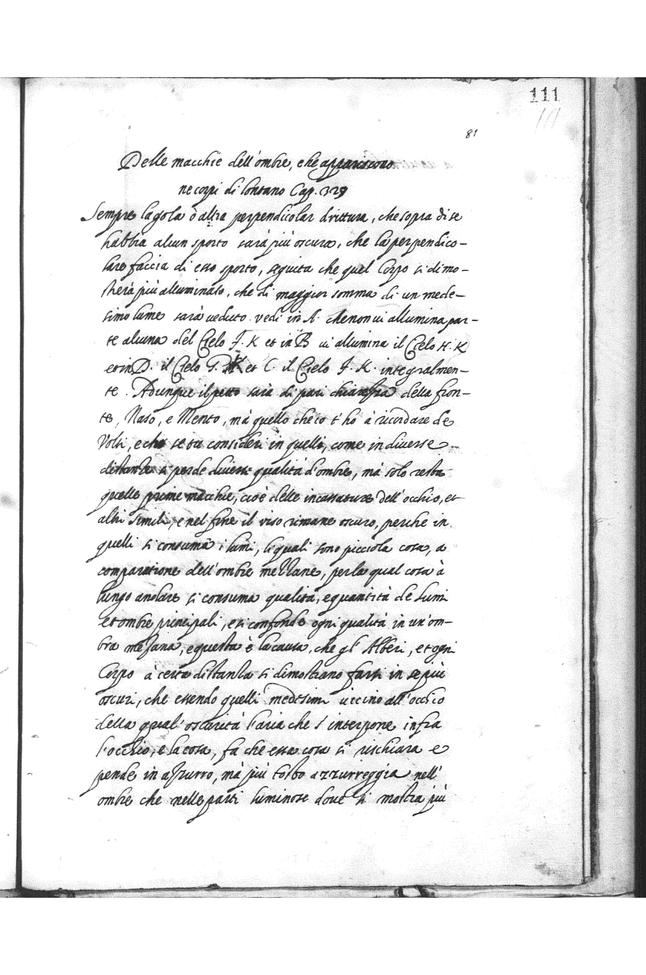 111
81
Delle macchie dell'ombre, che appariscono
ne corpi di lontano Cap. 329
Sempre la gola ò altra perpendicolar drittura, che sopra di se
habbia alcun sporto sarà più oscura, che la perpendico-
lare faccia di esso sporto, seguita che quel Corpo si dimo-
strerà più alluminato, che di maggior somma di un mede-
simo lume sarà veduto. vedi in A. che non vi allumina par-
te alcuna del Cielo F. K et in B vi allumina il Cielo H. K
et in D. il Cielo G. K et C. il Cielo F. K. integralmen-
te. Adunque il petto sarà di pari chiarezza della fron-
te, Naso, e Mento, mà quello che io t'hò à ricordare de
Volti, e che se tu consideri in quelli, come in diverse
distantie si perde diverse qualità d'ombre, mà solo resta
quelle prime macchie, cioè delle incassature dell'occhio, et
altri simili, e nel fine il viso rimane oscuro, perche in
quelli si consuma i lumi, li quali sono picciola cosa, a
comparatione dell'ombre mezzane, per la qual cosa à
lungo andare si consuma qualità, e quantità de lumi
et ombre principali, e si confonde ogni qualità in un'om-
bra mezana, e questa è la causa, che gl'Alberi, et ogni
Corpo à certa distantia si dimostrano farsi in se più
oscuri, che essendo quelli medesimi vicino all'occhio
della qual'oscurità l'aria che s'interpone infra
l'occhio, e la cosa, fà che essa cosa si rischiara e
pende in azzurro, mà più tosto azzurreggia nell'
ombre che nelle parti luminose dove si mostra più